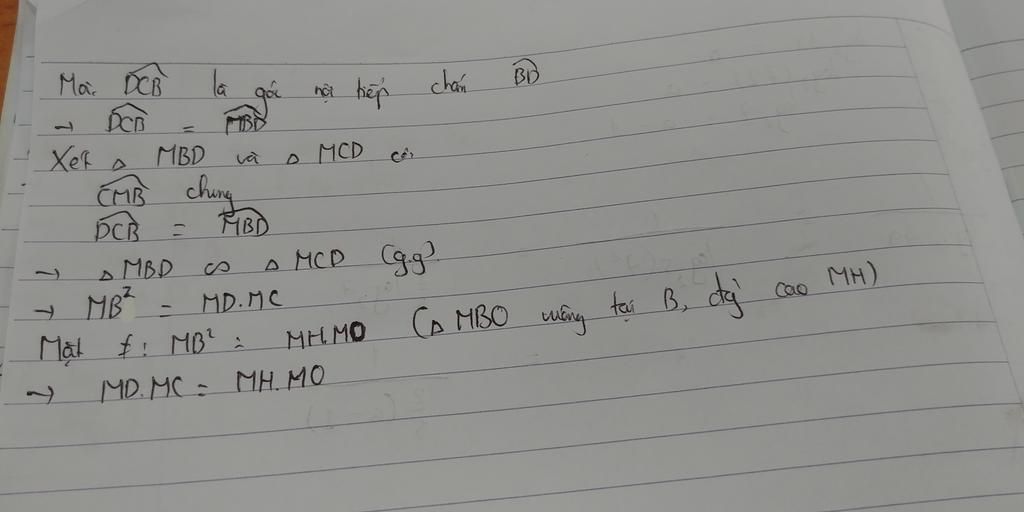 Mà DCB là góc nội tiếp chắn BD
→ DCB = MBD
Xét △ MBD và △ MCD có
CMB chung
DCB = MBD
→ △ MBD ∽ △ MCD (g.g)
→ MB² = MD.MC
Mặt ≠: MB² = MH.MO (△ MBO vuông tại B, đg cao MH)
→ MD.MC = MH.MO